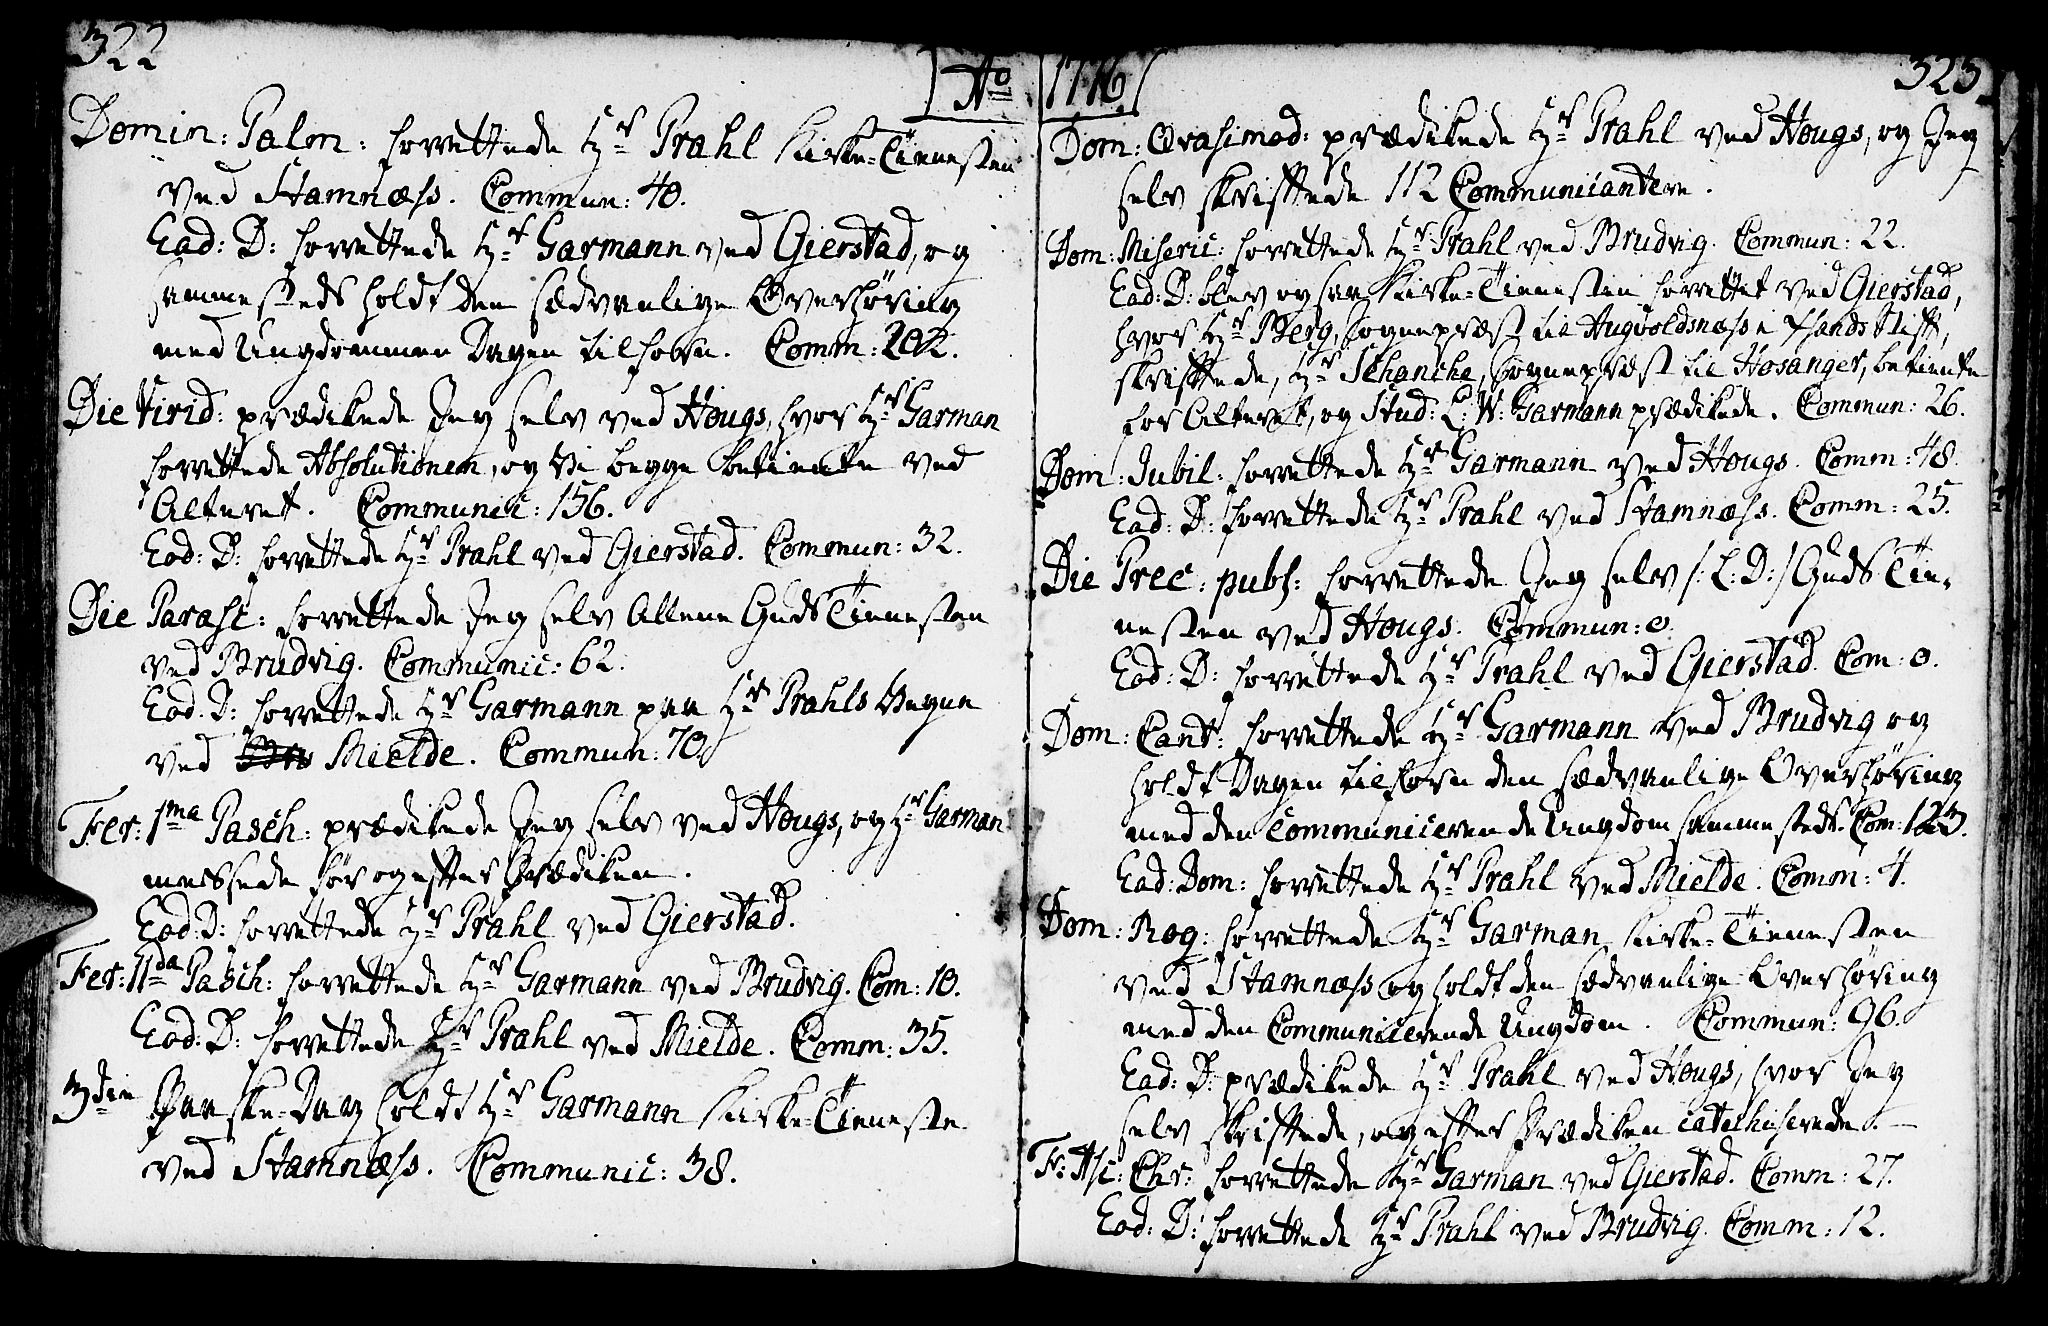 322
Ao 1776.
323
Domin: Palm: forrettede Hr Prahl Kirke-Tienesten
ved Stamnæss. Commun: 40.
Ead: D: forrettede Hr Garmann ved Gierstad, og
sammesteds holdt den sædvanlige Overhöring
med Ungdommen Dagen tilforn. Comm: 202.
Die Virid: prædikede Jeg selv ved Hougs, hvor Hr Garman
forrettede Absolutionen, og Vi begge betiente ved
Alteret. Communic: 156.
Eod: D: forrettede Hr Prahl ved Gierstad. Commun: 32.
Die Parasc: forrettede Jeg selv Allene Guds Tienesten
ved Brudvig. Communic: 62.
Eod. D: forrettede Hr Garmann paa Hr Prahls Vegne
ved Mielde. Commun: 70.
Fer: 1ma Pasch: prædikede Jeg selv ved Hougs, og Hr Garman
messede för og efter Prædiken.
Eod: D: forrettede Hr Prahl ved Gierstad.
Fer: IIda Pasch: forrettede Hr Garmann ved Brudvig. Com: 10.
Eod: D: forrettede Hr Prahl ved Mielde. Comm: 35.
3die Paaske-Dag holdt Hr Garmann Kirke-Tieneste
ved Stamnæss. Communic: 38.
Dom: Qvasimod: prædikede Hr Prahl ved Hougs, og Jeg
selv skriftede 112 Communicantere.
Dom: Miseric: forrettede Hr Prahl ved Brudvig. Commun: 22.
Ead: D: blev og saa Kirke-Tienesten forrettet ved Gierstad,
hvor Hr Berg, Sognepræst til Augvoldsnæss i Chsands Stift,
skriftede, Hr Schanche, Sognepræst til Hosanger, betiente
for Alteret, og Stud: L: W: Garmann prædikede. Commun: 26.
Dom: Jubil: forrettede Hr Garmann ved Hougs. Comm: 48.
Ead: D: forrettede Hr Prahl ved Stamnæss. Comm: 25.
Die Prec: publ: forrettede Jeg selv /: L: D: / Guds Tie-
nesten ved Hougs. Commun: 0.
Ead: D: forrettede Hr Prahl ved Gierstad. Com: 0.
Dom: Cant: forrettede Hr Garmann ved Brudvig og
holdt Dagen tilforn den sædvanlige Overhöring
med den communicerende Ungdom sammesteds. Com: 123.
Ead: Dom: forrettede Hr Prahl ved Mielde. Comm: 4.
Dom: Rog: forrettede Hr Garman Kirke-Tienesten
ved Stamnæss og holdt den sædvanlige Overhöring
med den Communicerende Ungdom. Commun: 96.
Ead: D: prædikede Hr Prahl ved Hougs, hvor Jeg
selv skriftede, og efter Prædiken catechiserede.
F: Asc: Chr: forrettede Hr Garman ved Gierstad. Comm: 27.
Eod: D: forrettede Hr Prahl ved Brudvig. Comm: 12.